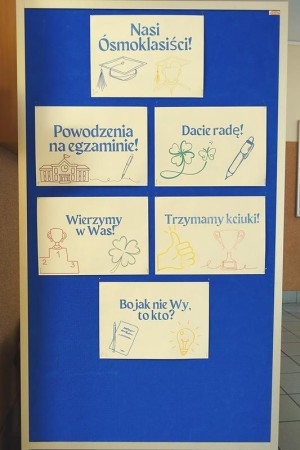 Nasi
Ósmoklasiści!
Powodzenia
na egzaminie!
Dacie radę!
Wierzymy
w Was!
1
2
3
Trzymamy kciuki!
Bo jak nie Wy,
to kto?